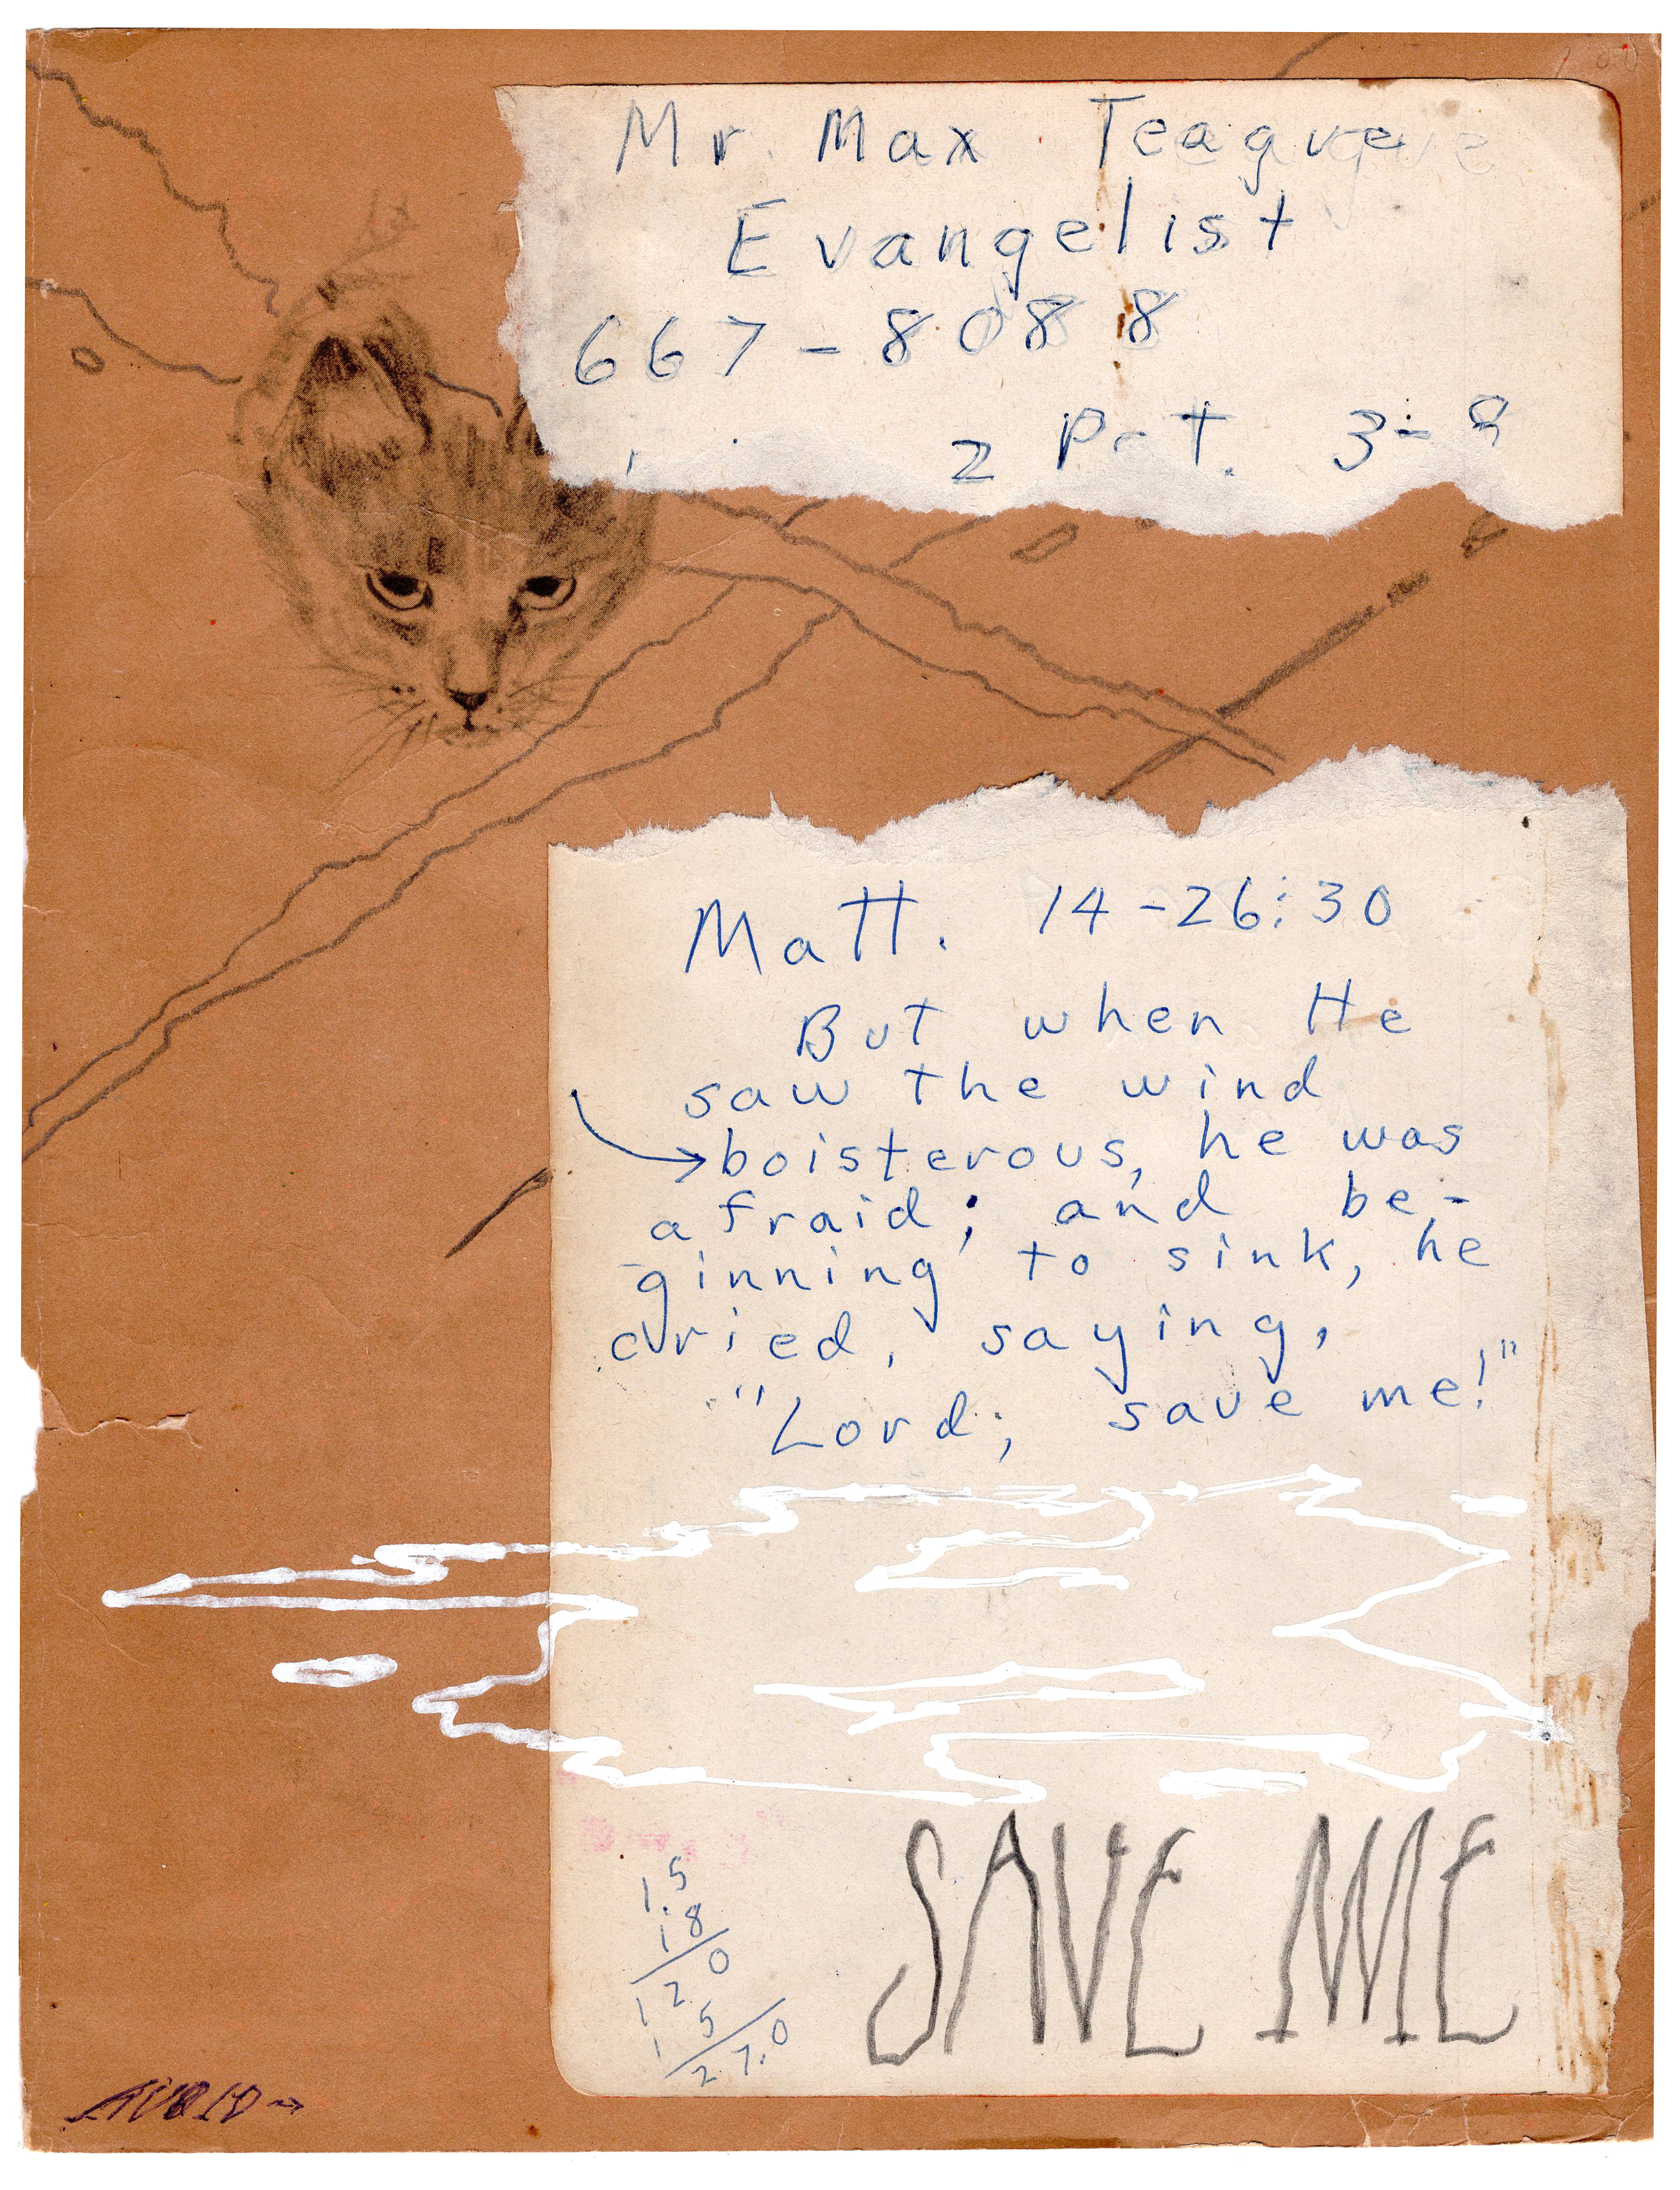 Mr. Max Teague
Evangelist
667-8088
2 Pet. 3-9
Matt. 14-26:30
But when He
saw the wind
→boisterous, he was
afraid; and be-
ginning to sink, he
cried, saying,
"Lord, save me!"
SAVE ME
1.5
18
120
15
27.0